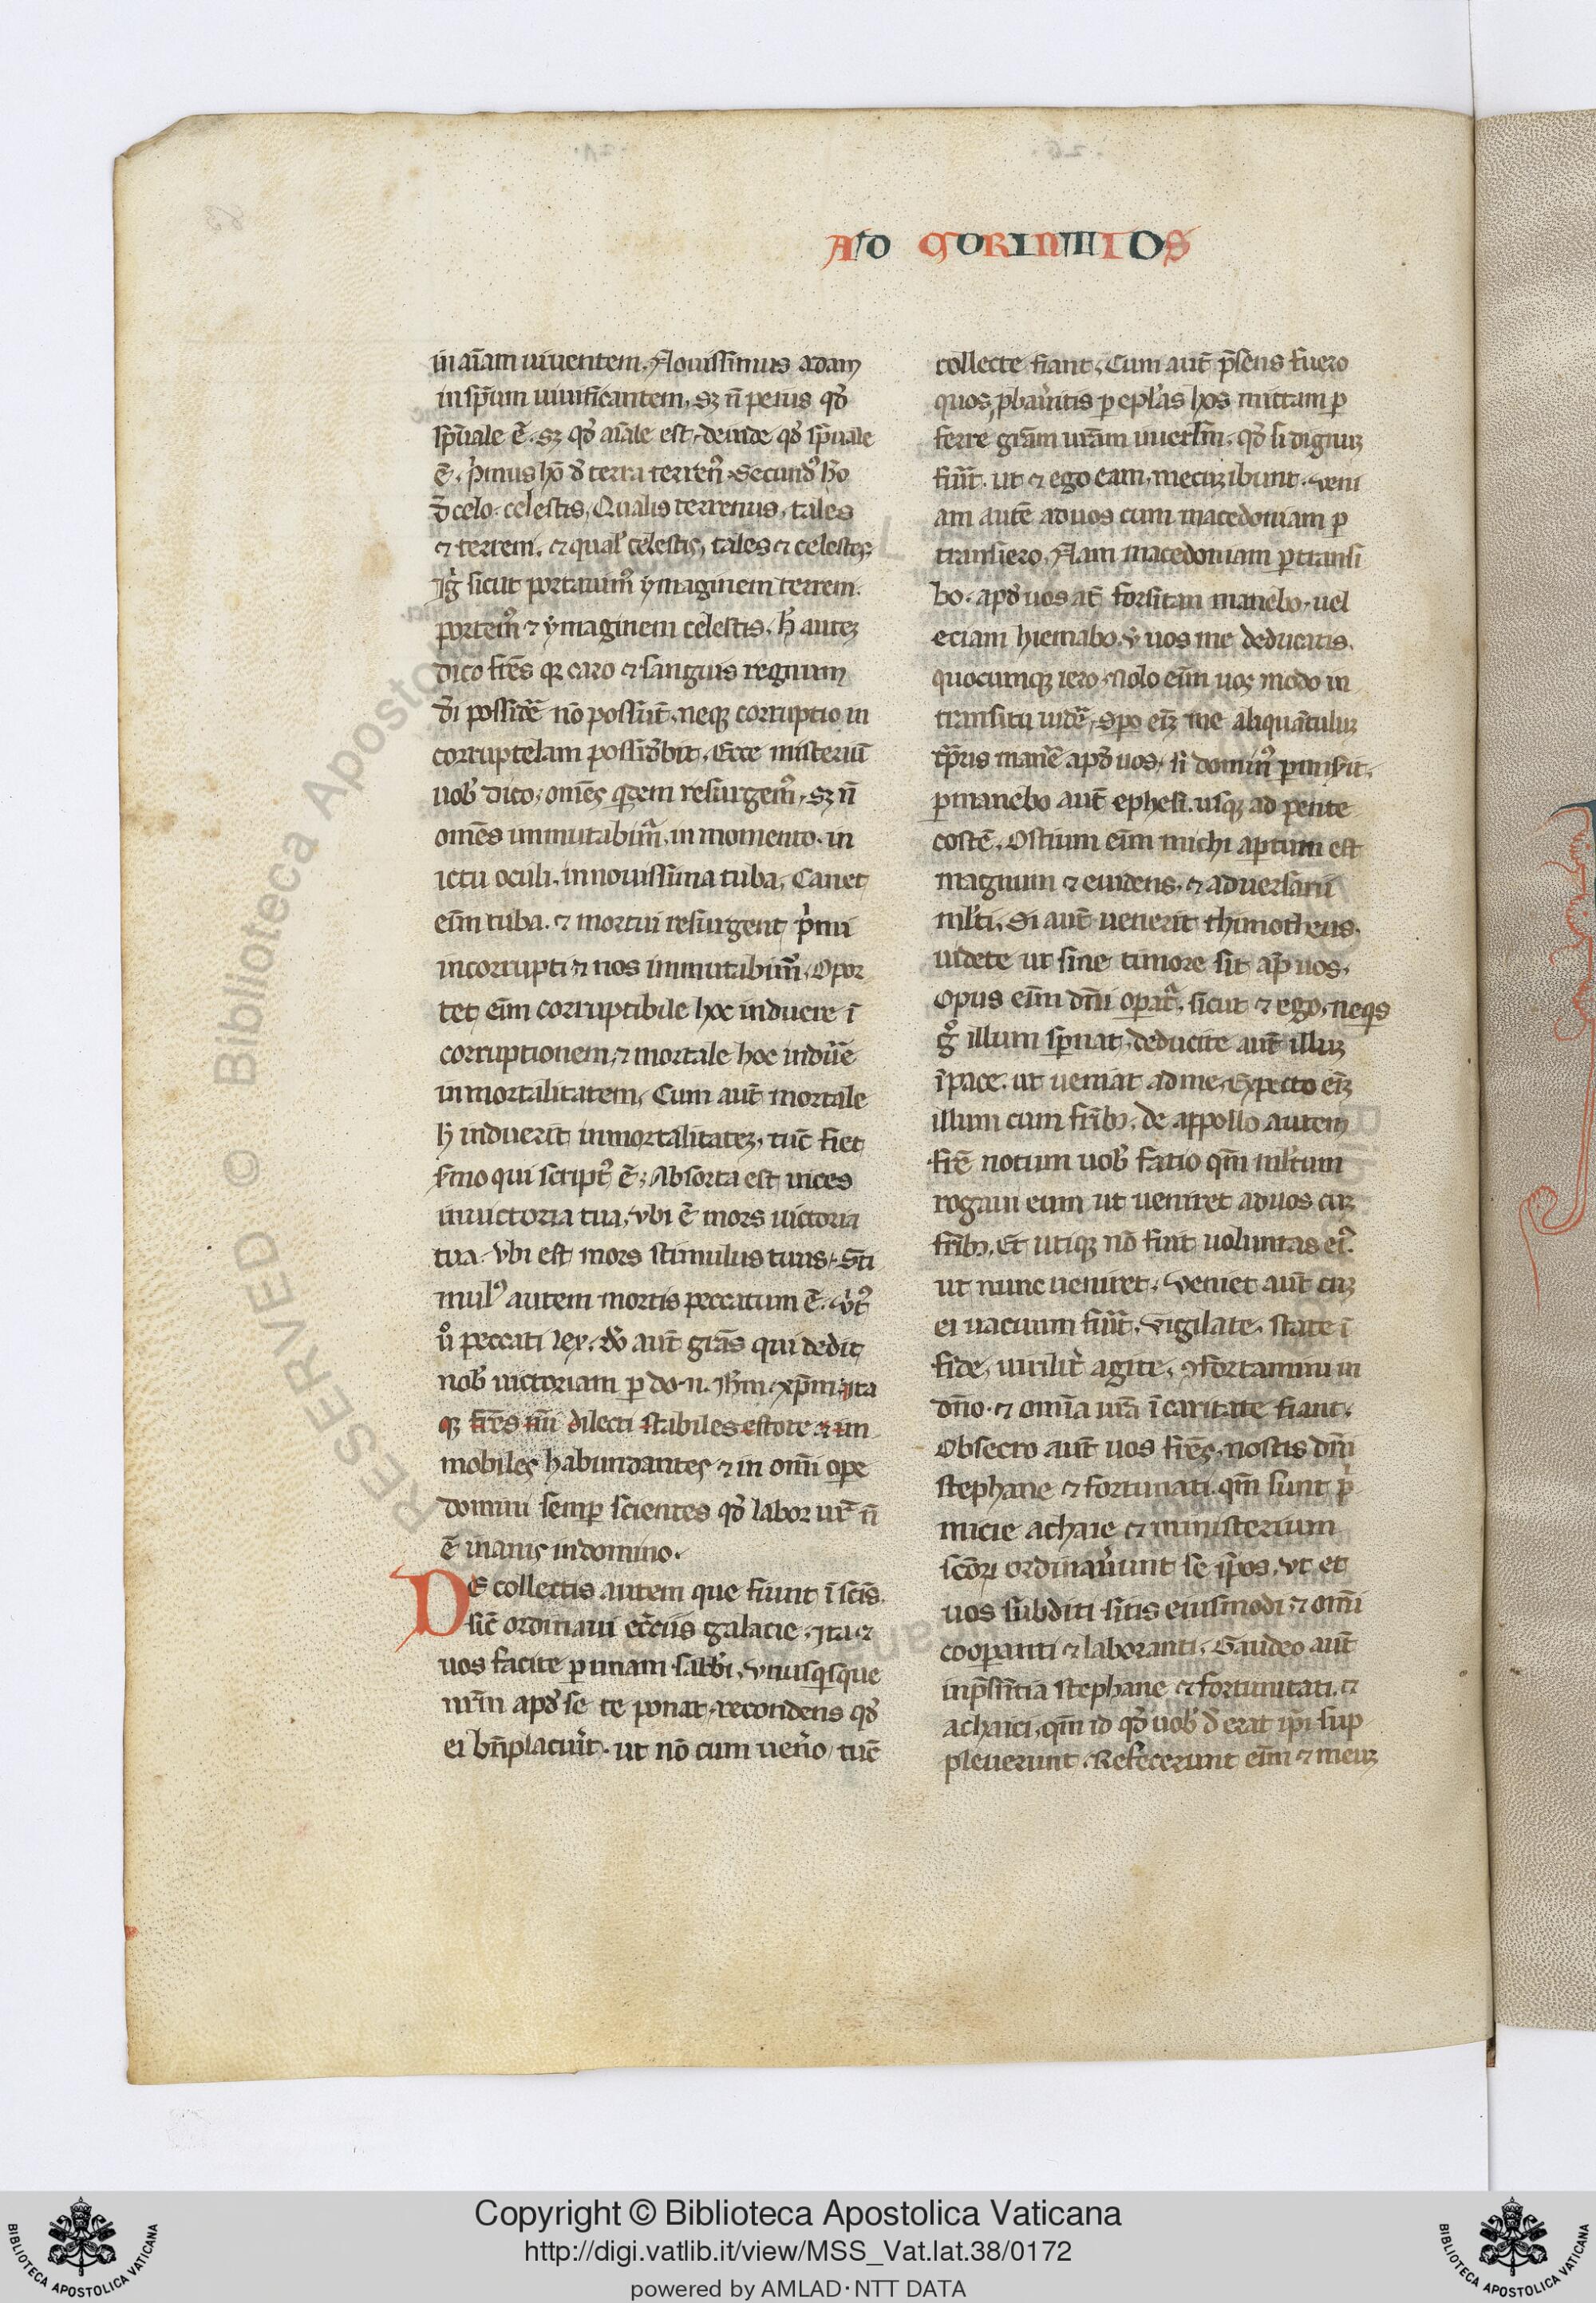 AD CORINTIOS
in aīam uiuentem. Nouissimus adam
in sp̄um uiuificantem. sꝫ n̄ prius qd̓
sp̄uale ē. sꝫ qd̓ aīale est. deinde qd̓ sp̄uale
ē. p̓mus hō d̓ terra terren᷒. Secund᷒ hō
d̓ celo celestis. Qualis terrenus. tales
⁊ terreni. ⁊ qual̓ celestis, tales ⁊ celestes.
Ig̓ sicut portauim᷒ ymaginem terreni.
portem᷒ ⁊ ymaginem celestis. h̓ auteꝫ
dico fr̄es qꝛ caro ⁊ sanguis regnum
d̓i possid̓e nō possūt. neqꝫ corruptio in
corruptelam possid̓bit. Ecce misteriū
uob̓ dico. om̄es qd̓em resurgem᷒. sꝫ n̄
om̄es inmutabim̄. in momento. in
ictu oculi. in nouissima tuba. Canet
eīm tuba. ⁊ mortui resurgent p̓mi
incorrupti ⁊ nos inmutabim̄. Opor
tet eīm corruptibile hoc induere ī
corruptionem ⁊ mortale hoc induē
inmortalitatem. Cum aūt mortale
h̓ induerit inmortalitateꝫ. tūc fiet
s̓mo qui script᷒ ē. Absorta est mors
in uictoria tua. vbi ē mors uictoria
tua. Vbi est mors stimulus tuus. Sti
mul᷒ autem mortis peccatum ē. v̓t᷒
u̓o peccati lex. d̓o aūt gr̄as qui dedit
nob̓ uictoriam ꝑ do. n. ih̄m. xp̄m. ita
qꝫ fr̄es mī dilecti stabiles estote ⁊ im
mobiles habundantes ⁊ in omī oꝑe
domini semꝑ scientes qd̓ labor ur̄ n̄
ē inanis in domino.
DE collectis autem que fiunt ī scīs.
sic̄ ordinaui ecc̄iis galacie. ita ⁊
uos facite ꝑ unam sabb̓i. Vnusqⁱsque
ur̄m apd̓ se re ponat. recondens qd̓
ei bn̄placuīt. ut nō cum uen̓o tūc
collecte fiant. Cum aūt p̄sens fuero
quos ꝓbaūitis ꝑ epl̓as hos mittam ꝑ
ferre gr̄am ur̄am in ierl̄m. qd̓ si dignuꝫ
fūit. ut ⁊ ego eam. mecuꝫ ibunt. Veni
am autē ad uos cum macedoniam ꝑ
transiero. Nam macedoniam ꝑtransi
bo. apd̓ uos at̄ forsitan manebo. uel
eciam hiemabo. ut uos me deducatis.
quocumqꝫ iero. Nolo eīm uos modo in
transitu uid̓e. Spo eīꝫ me aliquātuluꝫ
tp̄ris manē apd̓ uos. si domin᷒ ꝑmis̓it.
ꝑmanebo aūt ephesi. usqꝫ ad pente
costē. Ostium eīm michi aptum est
magnum ⁊ euidens. ⁊ aduersarii
ml̓ti. Si aūt uenerit thimotheus.
uidete ut sine timore sit ap̄ uos.
opus eīm dn̄i oꝑat̓. sicut ⁊ ego. neqⁱs
g̊ illum sꝑnat. deducite aūt illuꝫ
ī pace. ut ueniat ad me. Expecto eīꝫ
illum cum fr̄ibꝫ. de appollo autem
frē notum uob̓ facio qm̄ ml̓tum
rogaui eum ut ueniret ad uos cuꝫ
fr̄ibꝫ. Et utiqꝫ nō fuit uoluntas ei᷒.
ut nunc ueniret. Veniet aūt cuꝫ
ei uacuum fūit. Vigilate. state ī
fide. uirilit̓ agite. ꝯfortamini in
dn̄o. ⁊ omīa ur̄a ī caritate fiant.
Obsecro aūt uos fr̄es. nostis dm̄
stephane ⁊ fortunati. qm̄ sunt p̓
micie achaie ⁊ ministerium
sc̄oꝝ ordinaūunt se ip̄os. Vt et
uos subditi sitis eiusmodi ⁊ omī
cooꝑanti ⁊ laboranti. Gaudeo aūt
in p̄sn̄tia stephane ⁊ fortunitati. ⁊
achaici. qm̄ id qd̓ uob̓ d̓ erat ip̄i sup
pleuerunt. Refecerunt eīm ⁊ meuꝫ
© Biblioteca Apostolica Vaticana
RESERVED
Copyright © Biblioteca Apostolica Vaticana
http://digi.vatlib.it/view/MSS_Vat.lat.38/0172
powered by AMLAD·NTT DATA
BIBLIOTECA APOSTOLICA VATICANA
BIBLIOTECA APOSTOLICA VATICANA